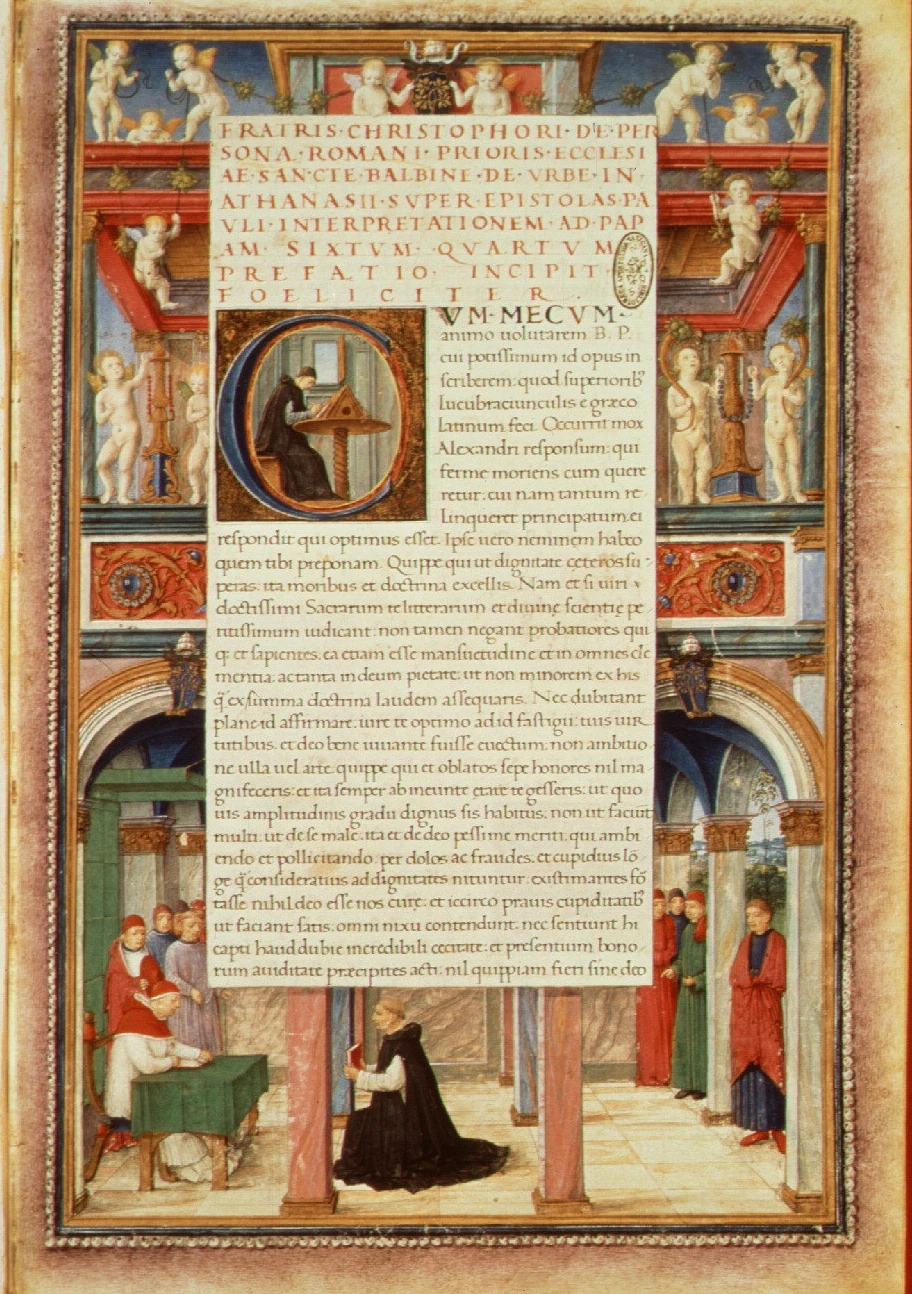 FRATRIS·CHRISTOPHORI·DE·PER
SONA·ROMANI·PRIORIS·ECCLESI
AE·SANCTE·BALBINE·DE·VRBE·IN
ATHANASII·SVPER·EPISTOLAS·PA
VLI·INTERPRETATIONEM·AD·PAP
AM·SIXTVM·QVARTVM
PREFATIO·INCIPIT·
FOELICITER.
CVM·MECVM·
animo uolutarem B. P.
cui potissimum id opus in
scriberem: quod superiorib
Lucubraciunculis e græco
Latinum feci. Occurrit mox
Alexandri responsum: qui
ferme moriens cum quere
retur: cui nam tantum re
linqueret principatum: ei
respondit qui optimus esset. Ipse uero neminem habeo
quem tibi preponam. Quippe qui ut dignitate ceteros su
peras: ita moribus et doctrina excellis. Nam et si uiri
doctissimi Sacrarum te litterarum et diuine scientię pe
ritissimum iudicant: non tamen negant probatiores qui
et sapientes. ea etiam esse mansuetudine et in omnes cle
mentia: ac tanta in deum pietate: ut non minorem ex his
q̃ ex summa doctrina laudem assequaris. Nec dubitant
plane id affirmare: iure te optimo ad id fastigii: tuis uir
tutibus. et deo bene iuuante fuisse euectum: non ambitio
ne ulla uel arte. quippe qui et oblatos sepe honores nil ma
gnifeceris: et ita semper ab ineunte etate te gesseris: ut quo
uis amplitudinis gradu dignus sis habitus. non ut faciunt
multi: ut de se male: ita et de deo pessime meriti. qui ambi
endo et pollicitando: per dolos ac fraudes. et cupidius lõ
ge q̃ consideratius ad dignitates nituntur: existimantes fõ
tasse nihil deo esse nos curę: et iccirco prauis cupiditatib
ut faciant satis: omni nixu contendunt: nec sentiunt hi
capti haud dubie incredibili cecitate: et presentium bono
rum auiditate præcipites acti: nil quippiam fieri sine deo